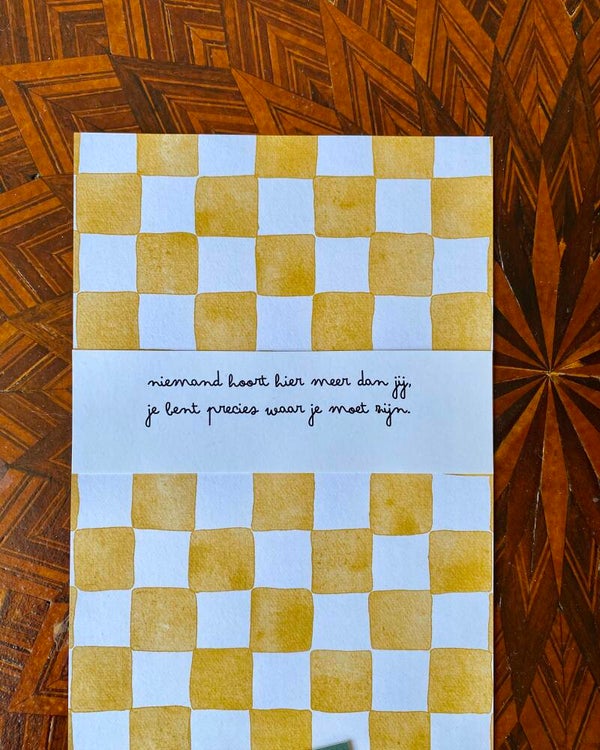 niemand hoort hier meer dan jij,
je bent precies waar je moet zijn.